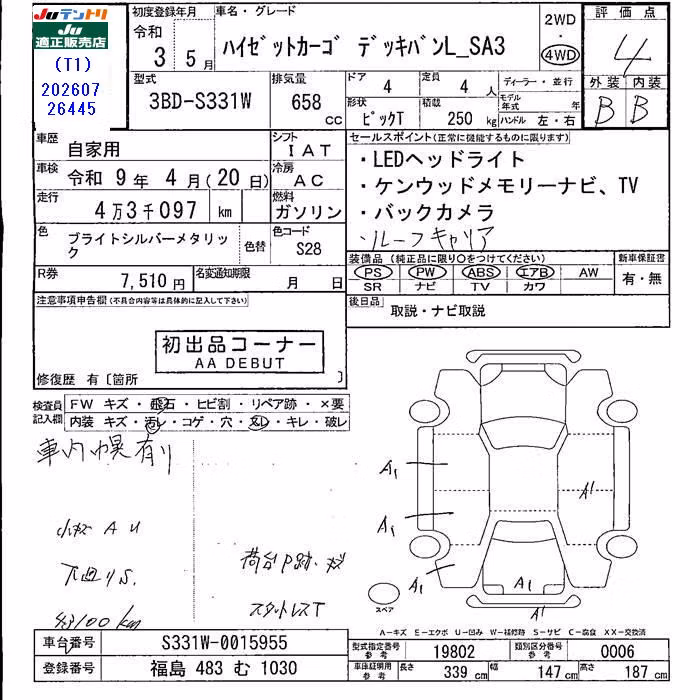 Juテントリ
Ju
適正販売店
(T1)
202607
26445
初度登録年月
令和
3 5月
車名・グレード
ハイゼットカーゴ デッキバンL_SA3
2WD
・
4WD
評価点
4
外装 内装
B B
型式
3BD-S331W
排気量
658 cc
ドア
4
定員
4 人
形状
ピックT
積載
250 kg
ディーラー・並行
モデル年式 年
ハンドル 左・右
車歴
自家用
シフト
IAT
車検
令和 9年 4月(20日)
冷房
AC
走行
4万3千097 km
燃料
ガソリン
色
ブライトシルバーメタリック
色替
色コード
S28
R券
7,510円
名変通知期限
月 日
セールスポイント(正常に機能するものに限ります)
・LEDヘッドライト
・ケンウッドメモリーナビ、TV
・バックカメラ
・ルーフキャリア
装備品(純正品に限り○をつけてください)
PS PW ABS エアB AW
SR ナビ TV カワ
新車保証書
有・無
後日品
取説・ナビ取説
注意事項申告欄(不具合内容等は具体的に記入して下さい)
初出品コーナー
AA DEBUT
修復歴 有〔箇所 〕
検査員記入欄
FW キズ・飛石・ヒビ割・リペア跡・×要
内装 キズ・汚レ・コゲ・穴・スレ・キレ・破レ
車内幌有り
小キズ A U
下廻りS.
荷台P跡.
スタットレスT
A1
A1
A1
A1
A1
A1
スペア
A-キズ E-エクボ U-凹み W-補修跡 S-サビ C-腐食 XX-交換済
車台番号
S331W-0015955
登録番号
福島 483 む 1030
型式指定番号
参考
19802
類別区分番号
参考
0006
車庫証明用
参考
長さ
339 cm
幅
147 cm
高さ
187 cm